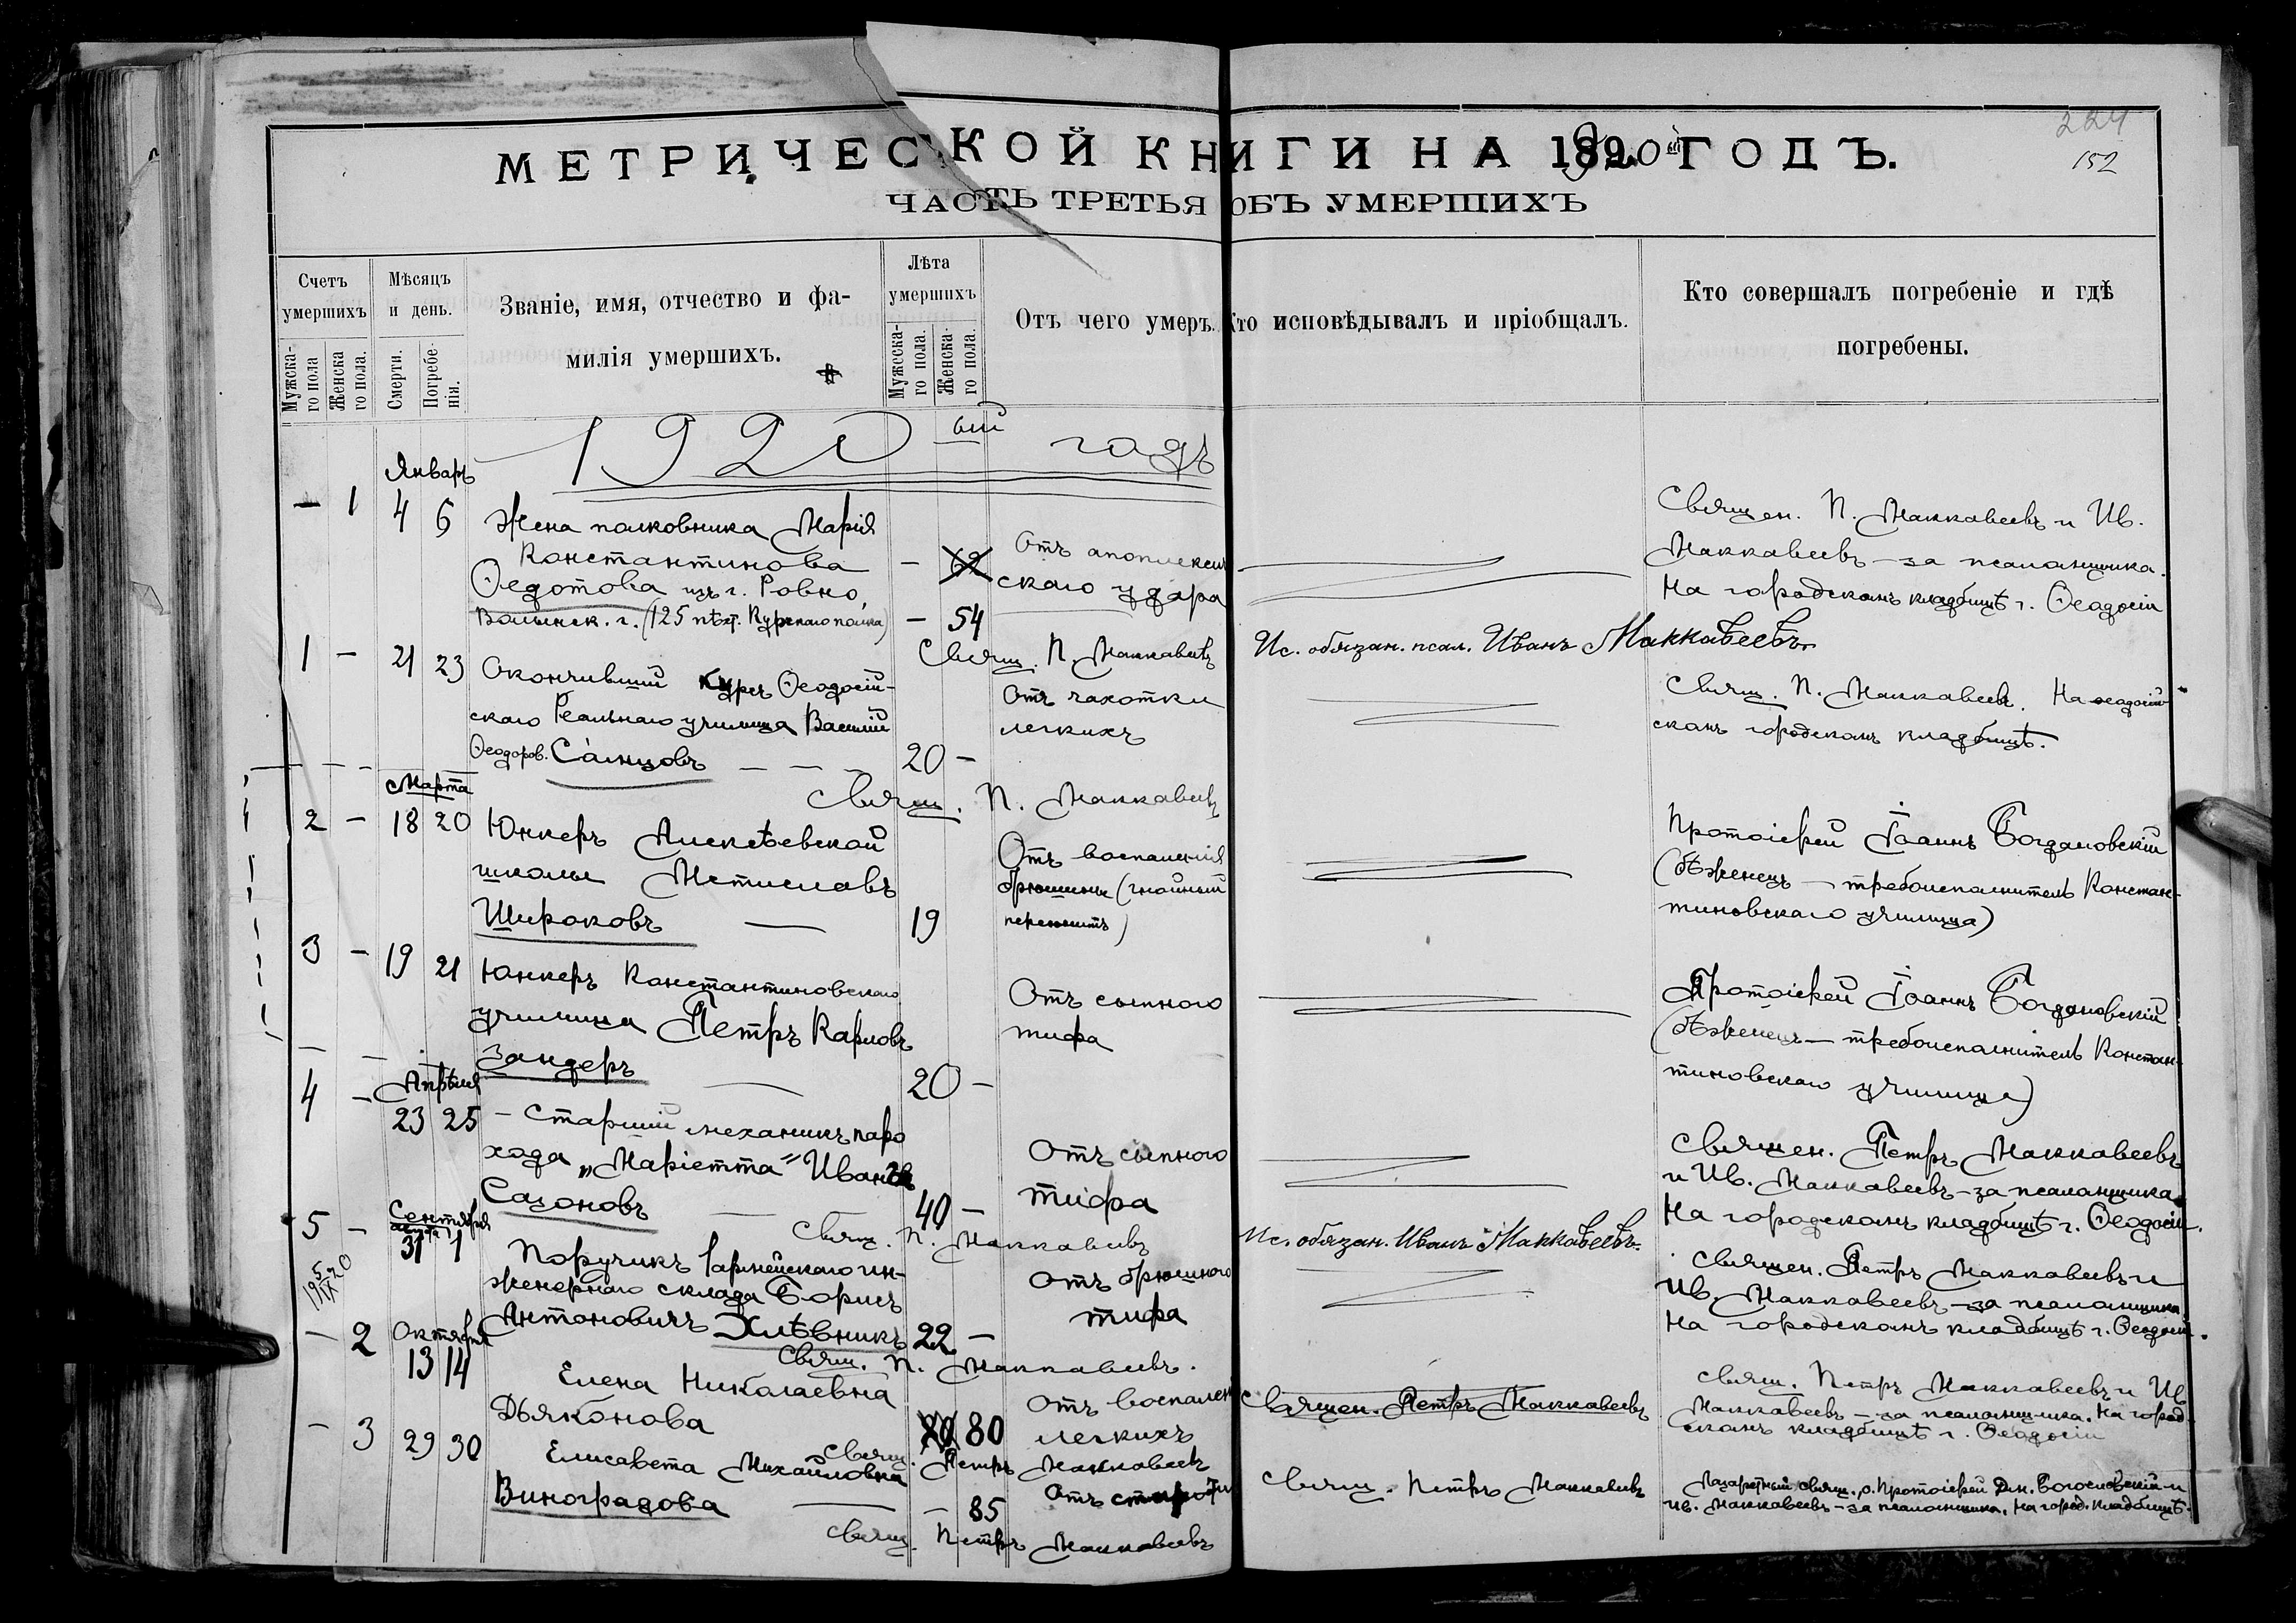 224
152
МЕТРИЧЕСКОЙ КНИГИ НА 1920ый ГОДЪ.
ЧАСТЬ ТРЕТЬЯ ОБЪ УМЕРШИХЪ
Счетъ умершихъ
Мужска-
го пола
Женска
го пола.
Мѣсяцъ
и день.
Смерти.
Погребе-
нія.
Званіе, имя, отчество и фа-
милія умершихъ.
Лѣта
умершихъ
Мужеска-
го пола.
Женска-
го пола.
Отъ чего умеръ.
Кто исповѣдывалъ и пріобщалъ.
Кто совершалъ погребеніе и гдѣ
погребены.
1920 ый годъ
Январь
— 1 4 6 Жена полковника Марія
Константинова
Ѳедотова изъ г. Ровно,
Волынск. г. (125 пѣх. Курскаго полка)
— 62
— 54
Отъ апоплексич
скаго удара
Священ. П. Маккавеевъ и Ив.
Маккавеевъ — за псаломщика.
На городскомъ кладбищѣ г. Ѳеодосіи
Свящ. П. Маккавеевъ
Ис. обязан. псал. Иванъ Маккавеевъ.
1 — 21 23 Окончившій курсъ Ѳеодосій-
скаго Реальнаго училища Василій
Ѳеодоров. Сáлнцовъ — — —
20 —
Отъ чахотки
легкихъ
Свящ. П. Маккавеевъ. На ѳеодосій-
скомъ городскомъ кладбищѣ.
Свящ. П. Маккавеевъ
Марта
2 — 18 20 Юнкеръ Алексѣевской
школы Мстиславъ
Широковъ —
19
Отъ воспаленія
брюшины (гнойный
перетонитъ)
Протоіерей Іоаннъ Богдановскій
(бѣженецъ — требоисполнитель Констан-
тиновскаго училища)
3 — 19 21 Юнкеръ Константиновскаго
училища Петръ Карловъ
Зандеръ —
20 —
Отъ сыпного
тифа
Протоіерей Іоаннъ Богдановскій
(бѣженецъ — требоисполнитель Констан-
тиновскаго училища)
Апрѣля
4 — 23 25 — Старшій механикъ паро
хода „Маріетта" Иванъ
Сазоновъ —
40 —
Отъ сыпного
тифа
Священ. Петръ Маккавеевъ
и Ив. Маккавеевъ — за псаломщика
На городскомъ кладбищѣ г. Ѳеодосіи.
Свящ. П. Маккавеевъ
Ис. обязан. Иванъ Маккавеевъ.
Сентября
августа
5 — 31 1 Поручикъ Іармейскаго ин-
женернаго склада Борисъ
Антоновичъ Хлѣвникъ 22 —
19 5/IX 20
Отъ брюшного
тифа
Священ. Петръ Маккавеевъ и
Ив. Маккавеевъ — за псаломщика.
На городскомъ кладбищѣ г. Ѳеодосіи.
Свящ. П. Маккавеевъ.
Октября
— 2 13 14 Елена Николаевна
Дьяконова
80 80
Отъ воспален
легкихъ
Священ. Петръ Маккавеевъ
Свящ. Петръ Маккавеевъ и Ив
Маккавеевъ — за псаломщика. На город-
скомъ кладбищѣ г. Ѳеодосіи
Свящ. Петръ Маккавеевъ
— 3 29 30 Елисавета Михайловна
Виноградова —
— 85
Отъ старости
Свящ. Петръ Маккавеевъ
Лазаретный свящ. о. Протоіерей Дм. Богословскій и
Ив. Маккавеевъ — за псаломщика. На город. кладбищѣ.
Свящ. Петръ Маккавеевъ